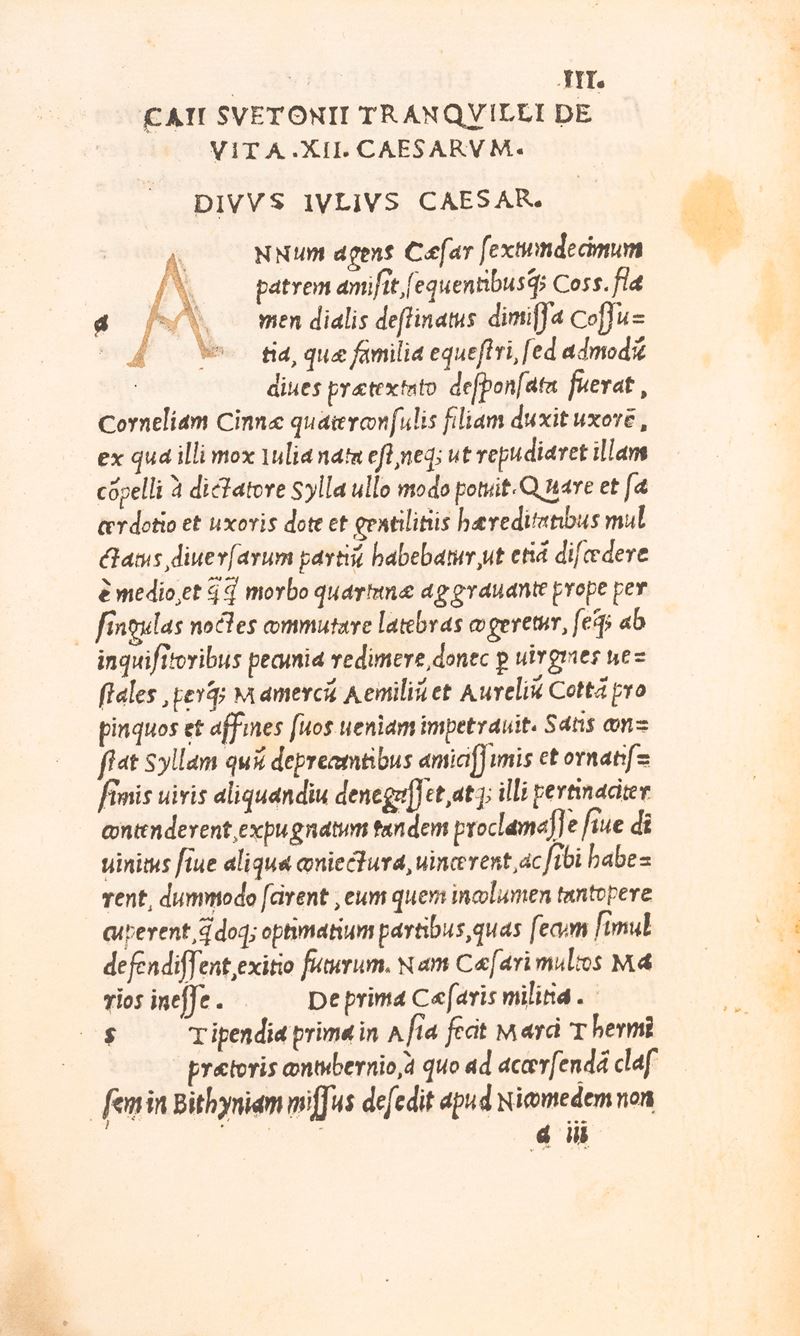 III.
CAII SVETONII TRANQVILLI DE
VITA .XII. CAESARVM.
DIVVS IVLIVS CAESAR.
a A NNum agens Cæſar ſextumdecimum
patrem amiſit, ſequentibusq́; Coss. fla
men dialis deſtinatus dimiſſa Coſſu=
tia, quæ familia equeſtri, ſed admodū
diues prætextato deſponſata fuerat,
Corneliam Cinnæ quaterconſulis filiam duxit uxorē,
ex qua illi mox Iulia nata eſt, neq; ut repudiaret illam
cōpelli à dictatore Sylla ullo modo potuit. Quare et ſa
cerdotio et uxoris dote et gentilitiis hæreditatibus mul
ctatus, diuerſarum partiū habebatur, ut etiā diſcedere
è medio, et q̄q̄ morbo quartanæ aggrauante prope per
ſingulas noctes commutare latebras cogeretur, ſeq́; ab
inquiſitoribus pecunia redimere, donec ꝑ uirgines ue=
ſtales, perq́; Mamercū Aemiliū et Aureliū Cottā pro
pinquos et affines ſuos ueniam impetrauit. Satis con=
ſtat Syllam quū deprecantibus amiciſſimis et ornatiſ=
ſimis uiris aliquandiu denegaſſet, atq; illi pertinaciter
contenderent, expugnatum tandem proclamaſſe ſiue di
uinitus ſiue aliqua coniectura, uincerent, ac ſibi habe=
rent, dummodo ſcirent, eum quem incolumen tantopere
cuperent, q̄doq; optimatium partibus, quas ſecum ſimul
defendiſſent, exitio futurum. Nam Cæſari multos Ma
rios ineſſe. De prima Cæſaris militia.
s Tipendia prima in Aſia fecit Marci Thermi
prætoris contubernio, à quo ad accerſendā claſ
ſem in Bithyniam miſſus deſedit apud Nicomedem non
a iii